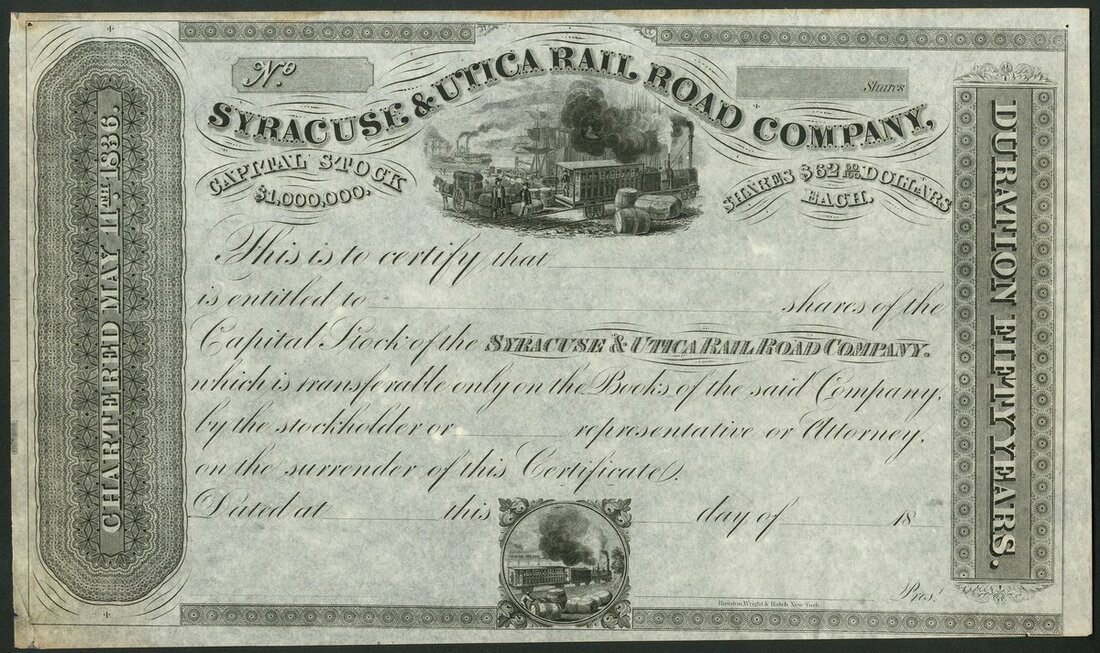 No
Shares
SYRACUSE & UTICA RAIL ROAD COMPANY,
CAPITAL STOCK
$1,000,000.
SHARES $62 50/100 DOLLARS
EACH.
CHARTERED MAY 11TH 1836.
DURATION FIFTY YEARS.
This is to certify that
is entitled to shares of the
Capital Stock of the SYRACUSE & UTICA RAIL ROAD COMPANY.
which is transferable only on the Books of the said Company,
by the stockholder or representative or Attorney,
on the surrender of this Certificate.
Dated at this day of 18
Prest.
Rawdon, Wright & Hatch New-York.